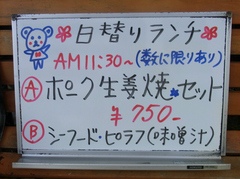 日替りランチ
AM11:30~(数に限りあり)
Ⓐポーク生姜焼セット
¥750-
Ⓑシーフード・ピラフ(味噌汁)